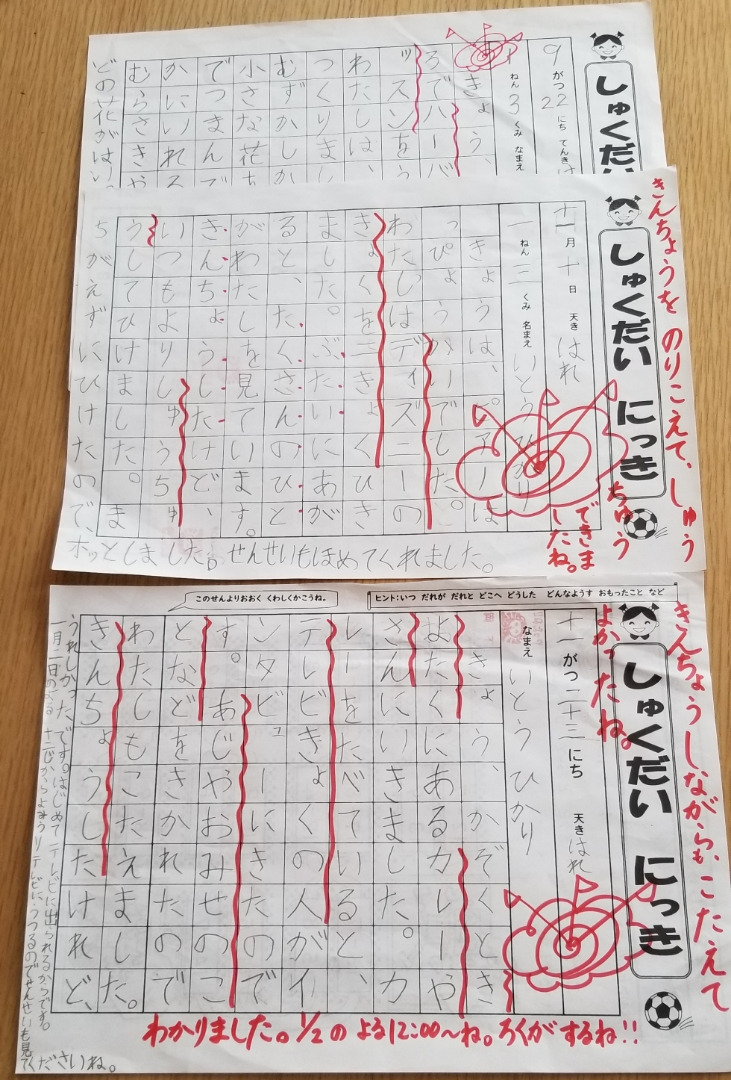 しゅくだい
9がつ22にち てんき は
ねん 3 くみ なまえ
きょう、
ろでハーバ
ッスンをう
わたしは、
つくりまし
むずかしか
小さな花ち
でつまんで
かにいれる
むらさきや
どの花がはい
きんちょうを のりこえて、しゅう
ちゅう
できま
したね。
しゅくだい にっき
十一月十日 天き はれ
一ねん三くみ 名まえ いとうひかり
きょうは、ピアノは
っぴょうかいでした。
わたしはディズニーの
きょくを三きょくひき
ました。ぶたいにあが
ると、たくさんのひと
がわたしを見ています。
きんちょうしたけど、
いつもよりしゅうちゅ
うしてひけました。ま
ちがえずにひけたので、
ホッとしました。せんせいもほめてくれました。
このせんよりおおく くわしくかこうね。
ヒント:いつ だれが だれと どこへ どうした どんなようす おもったこと など
きんちょうしながらも、こたえて
よかったね。
しゅくだい にっき
十一がつ二十三にち 天きはれ
なまえ いとうひかり
きょう、かぞくとき
よたくにあるカレーや
さんにいきました。カ
レーをたべていると、
テレビきょくの人がイ
ンタビューにきたので
す。あじやおみせのこ
となどをきかれたので
わたしもこたえました。
きんちょうしたけれど、
うれしかったです。はじめてテレビに出られるからです。
一月二日のよる十二じからよみうりテレビにうつるのでせんせいも見てくださいね。
わかりました。1/2のよる12:00〜ね。ろくがするね!!